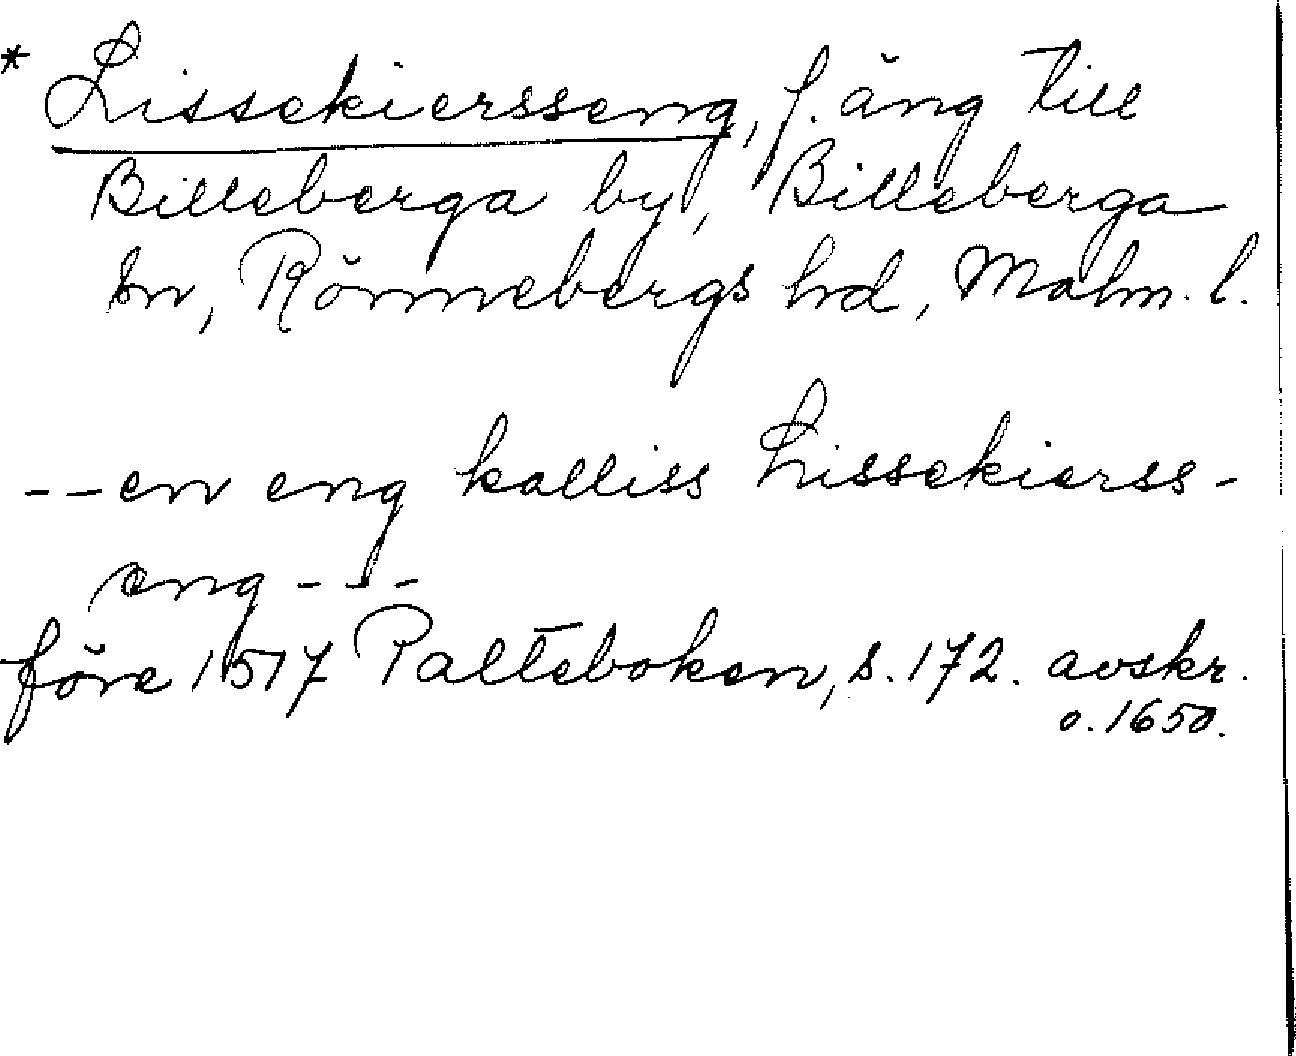 * Lissekiersseng, f. äng till
Billeberga by, Billeberga
sn, Rönnebergs hd, Malm. l.
--en eng kalliss Lissekierss-
eng ---
före 1517 Palteboken, s. 172. avskr.
o. 1650.